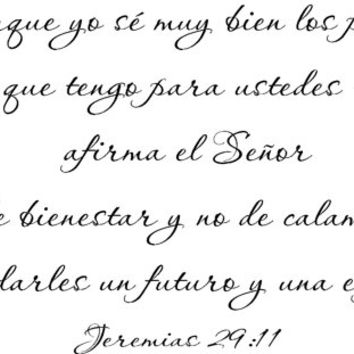 que yo sé muy bien los
que tengo para ustedes
afirma el Señor
bienestar y no de
darles un futuro y una
Jeremias 29:11